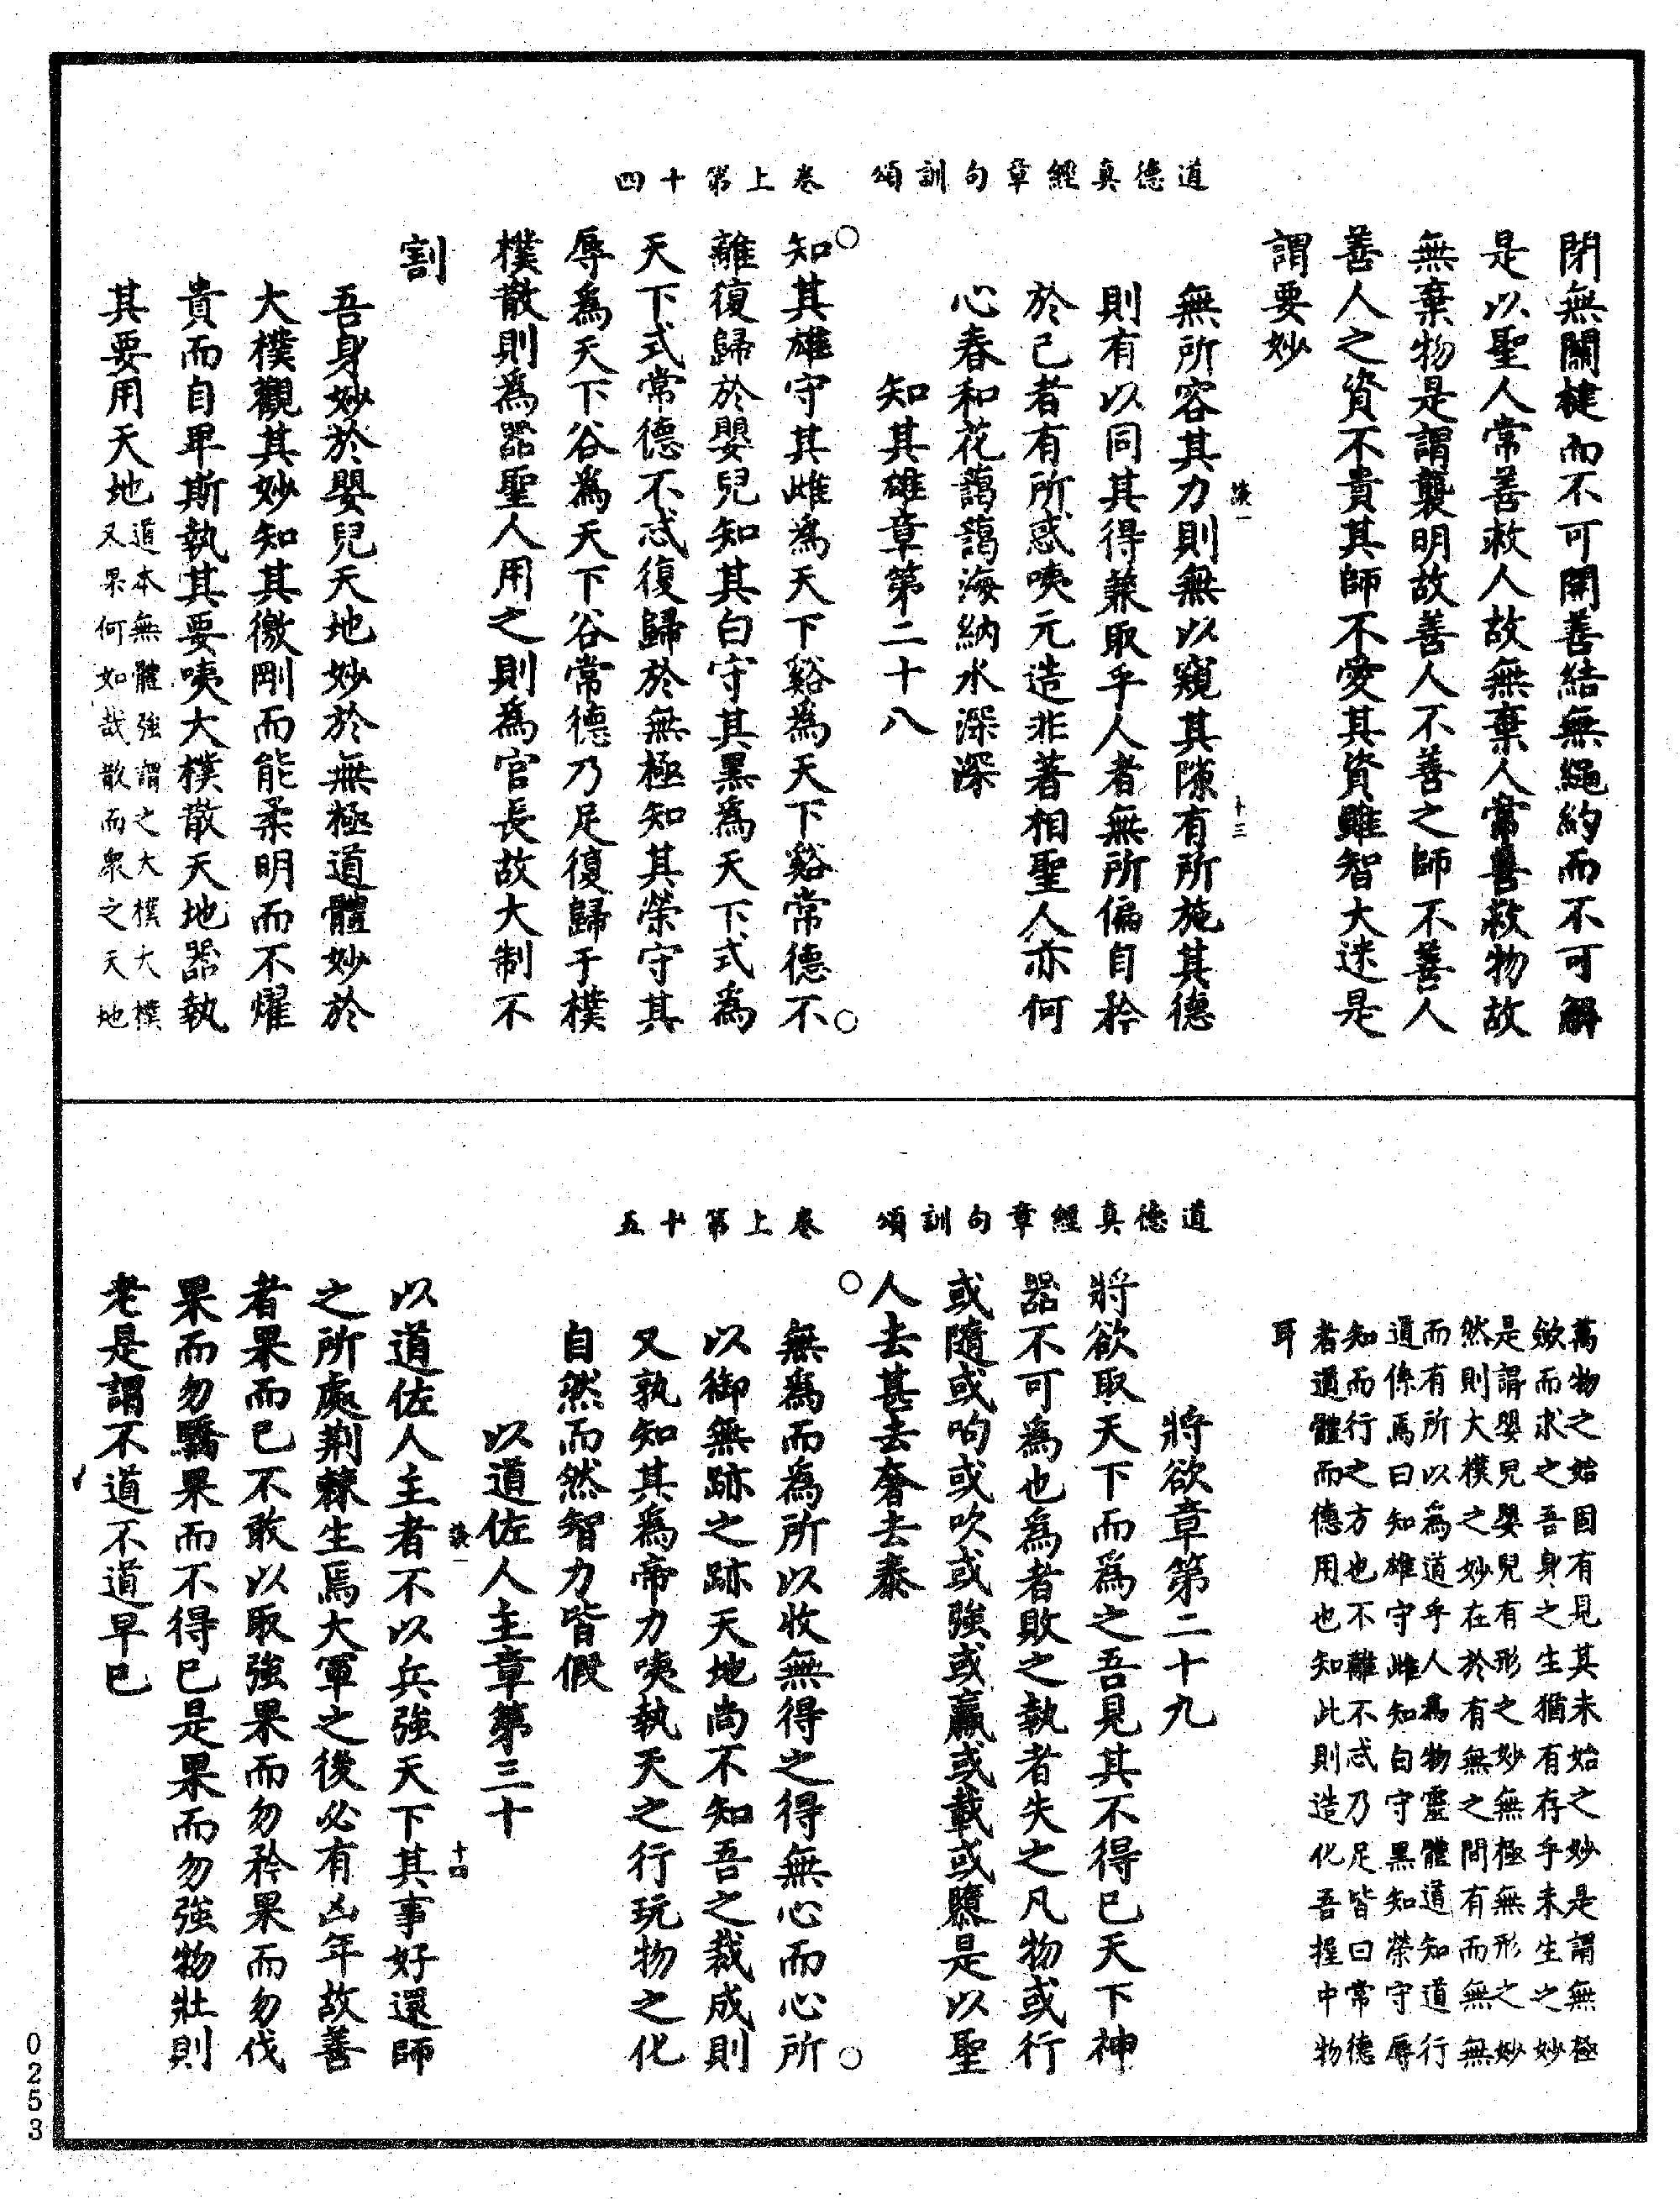 道德真經章句訓頌　卷上第十四
閉無關楗而不可開善結無繩約而不可解
是以聖人常善救人故無棄人常善救物故
無棄物是謂襲明故善人不善之師不善人
善人之資不貴其師不愛其資雖智大迷是
謂要妙
無所容其力則無以窺其隙有所施其德
則有以同其得兼取乎人者無所偏自矜
於己者有所惑咦元造非著相聖人亦何
心春和花藹藹海納水深深
知其雄章第二十八
知其雄守其雌為天下谿為天下谿常德不
離復歸於嬰兒知其白守其黑為天下式為
天下式常德不忒復歸於無極知其榮守其
辱為天下谷為天下谷常德乃足復歸于樸
樸散則為器聖人用之則為官長故大制不
割
吾身妙於嬰兒天地妙於無極道體妙於
大樸觀其妙知其徼剛而能柔明而不燿
貴而自卑斯執其要咦大樸散天地器執
其要用天地道本無體強謂之大樸大樸
又果何如哉散而衆之天地
道德真經章句訓頌　卷上第十五
萬物之始固有見其未始之妙是謂無極
斂而求之吾身之生猶有存乎未生之妙
是謂嬰兒嬰兒有形之妙無極無形之妙
然則大樸之妙在於有無之間有而無無
而有所以為道乎人為物靈體道知道行
道係焉曰知雄守雌知白守黑知榮守辱
知而行之方也不離不忒乃足皆曰常德
者道體而德用也知此則造化吾握中物
耳
將欲章第二十九
將欲取天下而為之吾見其不得已天下神
器不可為也為者敗之執者失之凡物或行
或隨或呴或吹或強或羸或載或隳是以聖
人去甚去奢去泰
無為而為所以收無得之得無心而心所
以御無跡之跡天地尚不知吾之裁成則
又孰知其為帝力咦執天之行玩物之化
自然而然智力皆假
以道佐人主章第三十
以道佐人主者不以兵強天下其事好還師
之所處荊棘生焉大軍之後必有凶年故善
者果而已不敢以取強果而勿矜果而勿伐
果而勿驕果而不得已是果而勿強物壯則
老是謂不道不道早已
十三
十四
0253